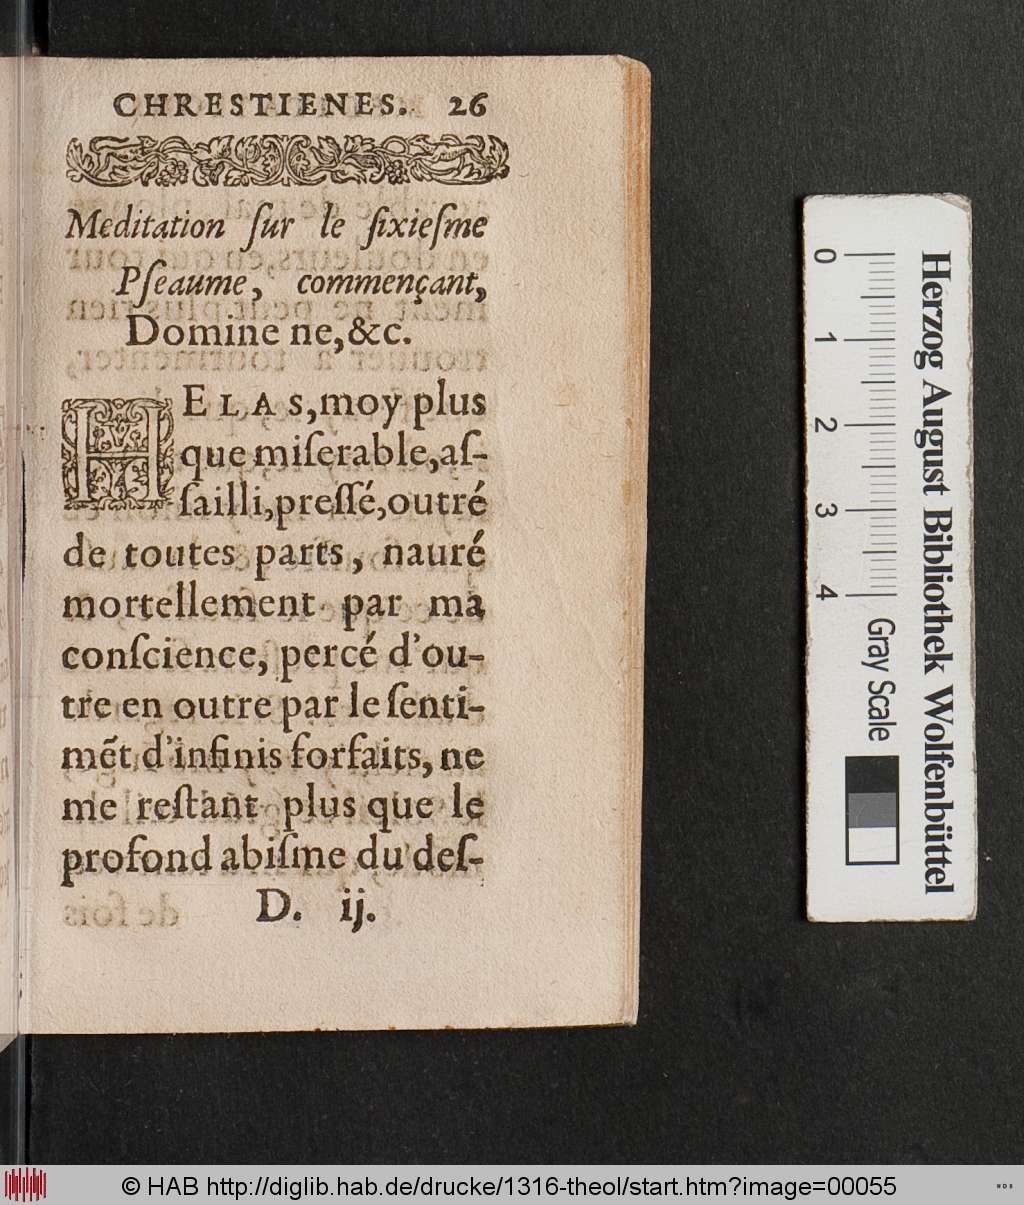 CHRESTIENES. 26
Meditation ſur le ſixieſme
Pſeaume, commençant,
Domine ne,&c.
HELAS,moy plus
que miſerable,aſ-
ſailli,preſſé,outré
de toutes parts, nauré
mortellement par ma
conſcience, percé d'ou-
tre en outre par le ſenti-
mẽt d'infinis forfaits, ne
me reſtant plus que le
profond abiſme du deſ-
D. ij.
0 1 2 3 4
Gray Scale
Herzog August Bibliothek Wolfenbüttel
© HAB http://diglib.hab.de/drucke/1316-theol/start.htm?image=00055